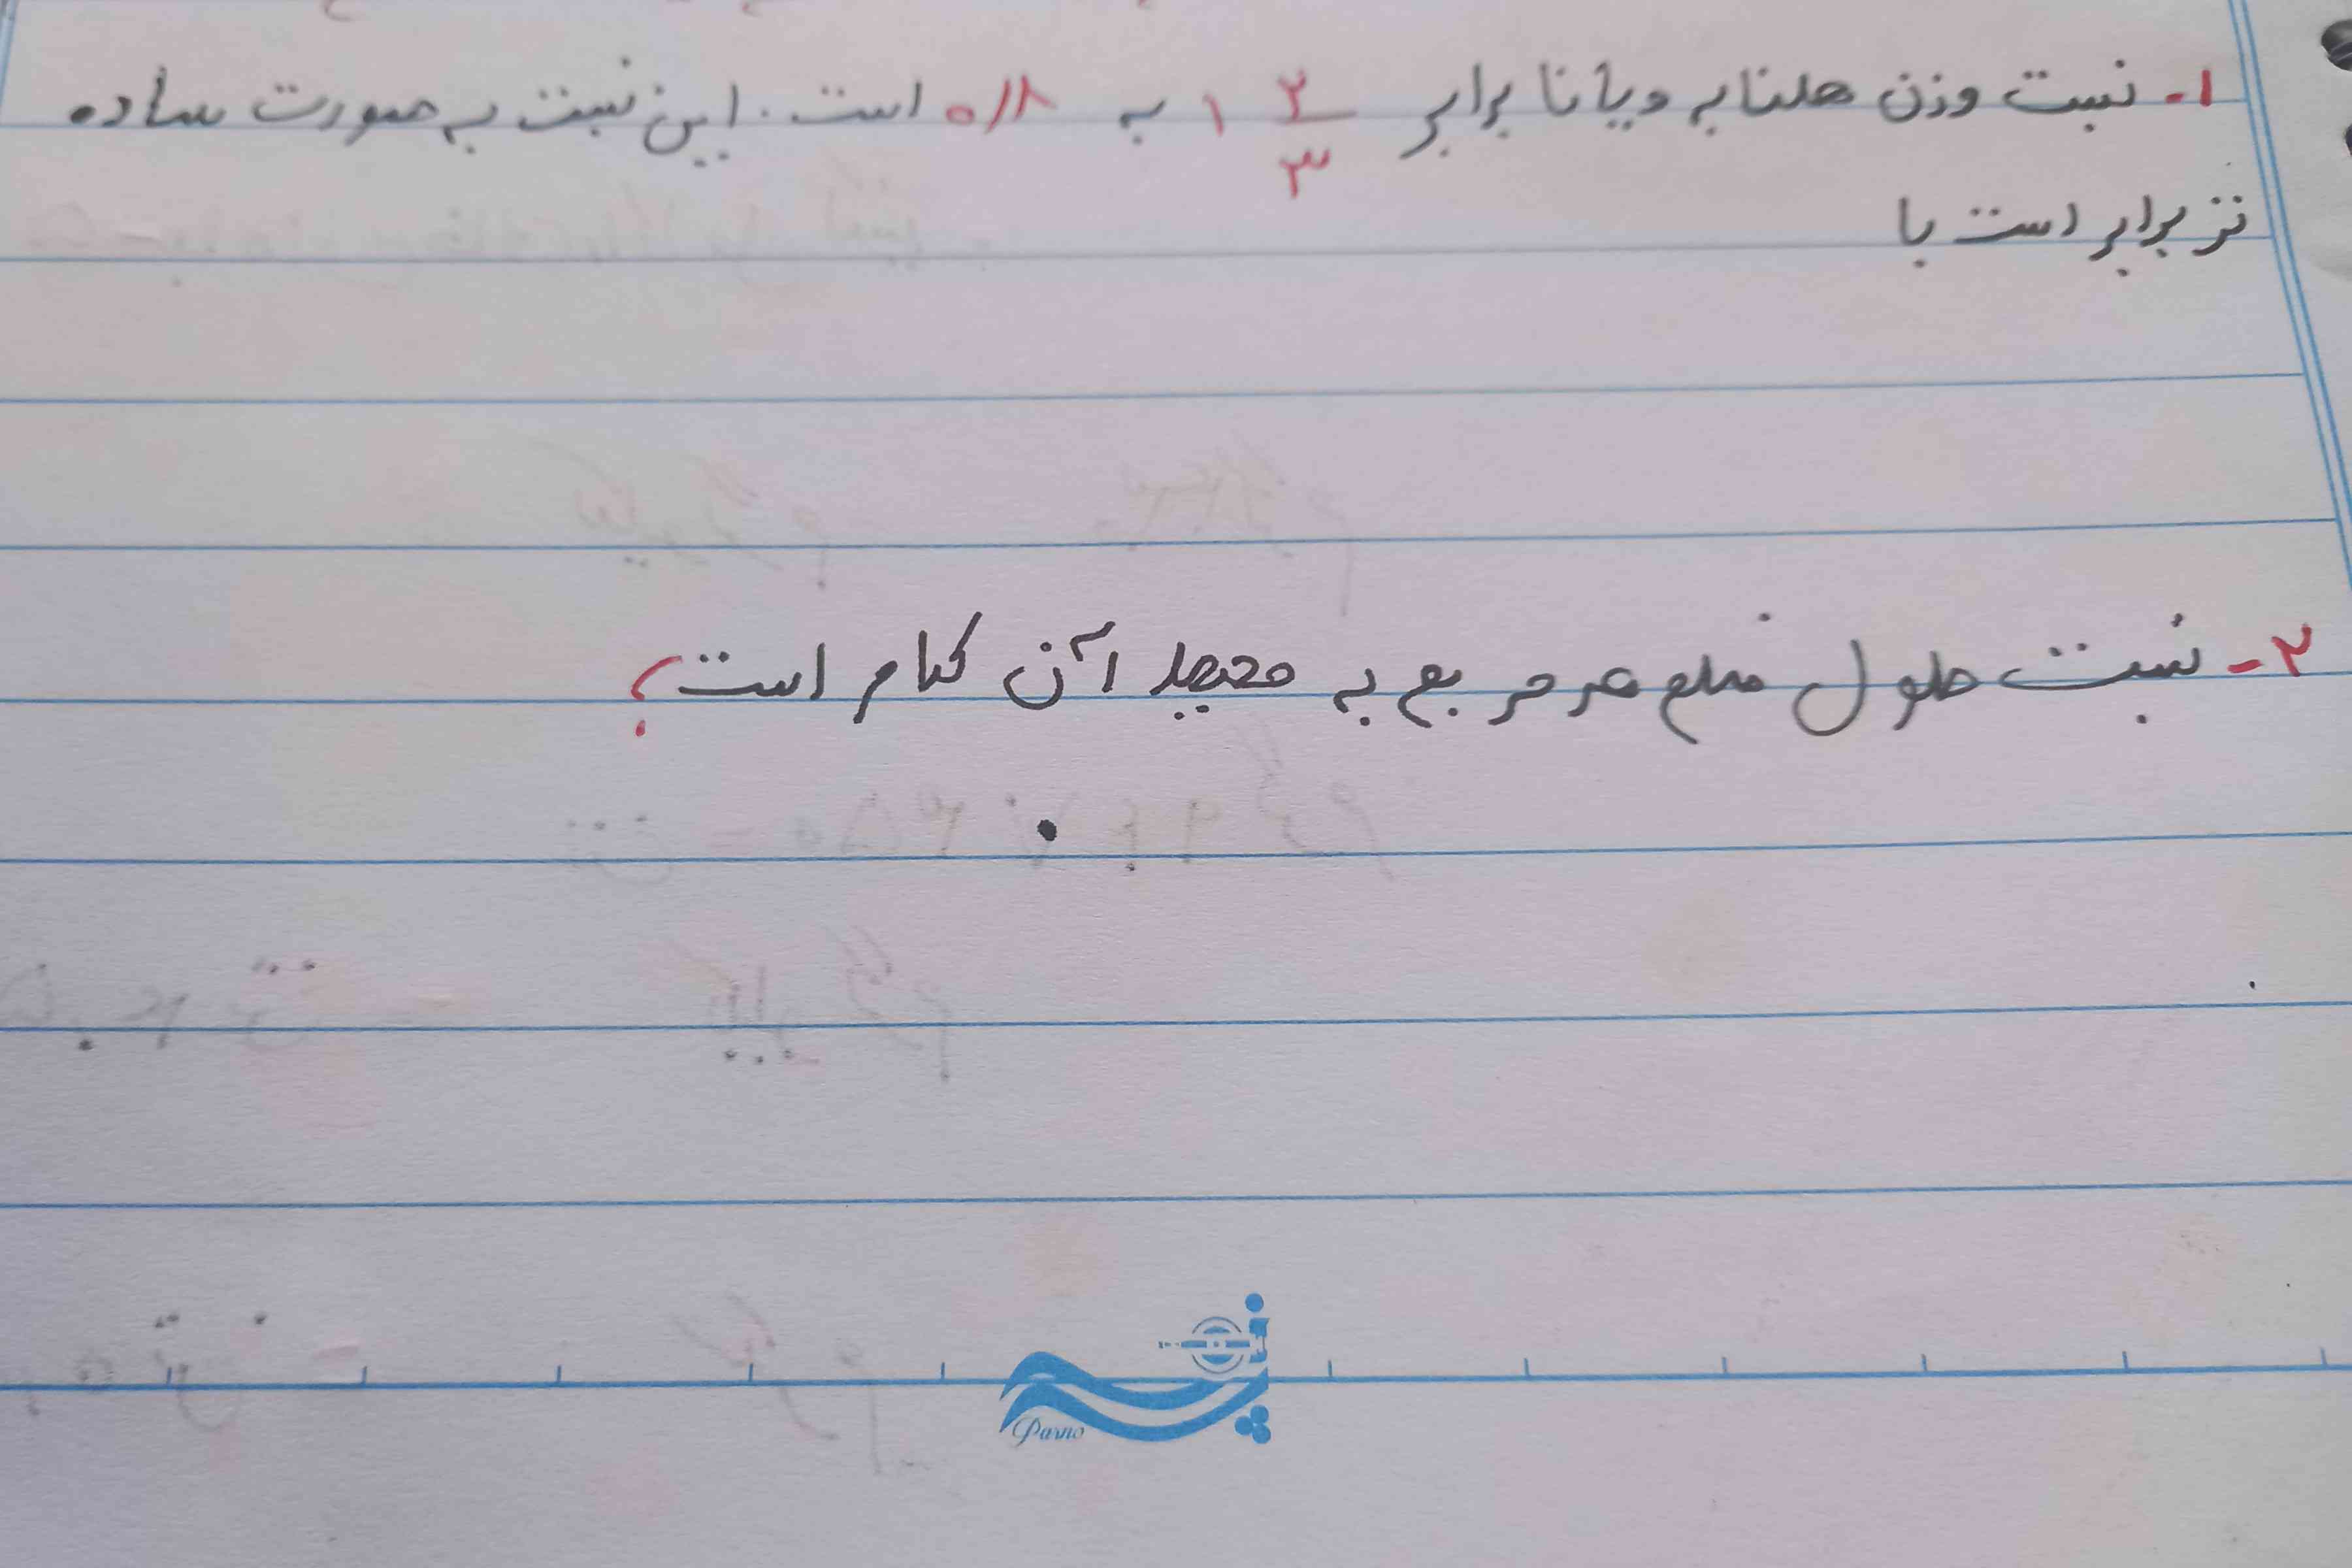 ۱- نسبت وزن هلنا به ویانا برابر ۱ ۲/۳ به ۰/۸ است. این نسبت به صورت ساده
تر برابر است با
۲- نسبت طول ضلع هر مربع به محیط آن کدام است؟
Parno